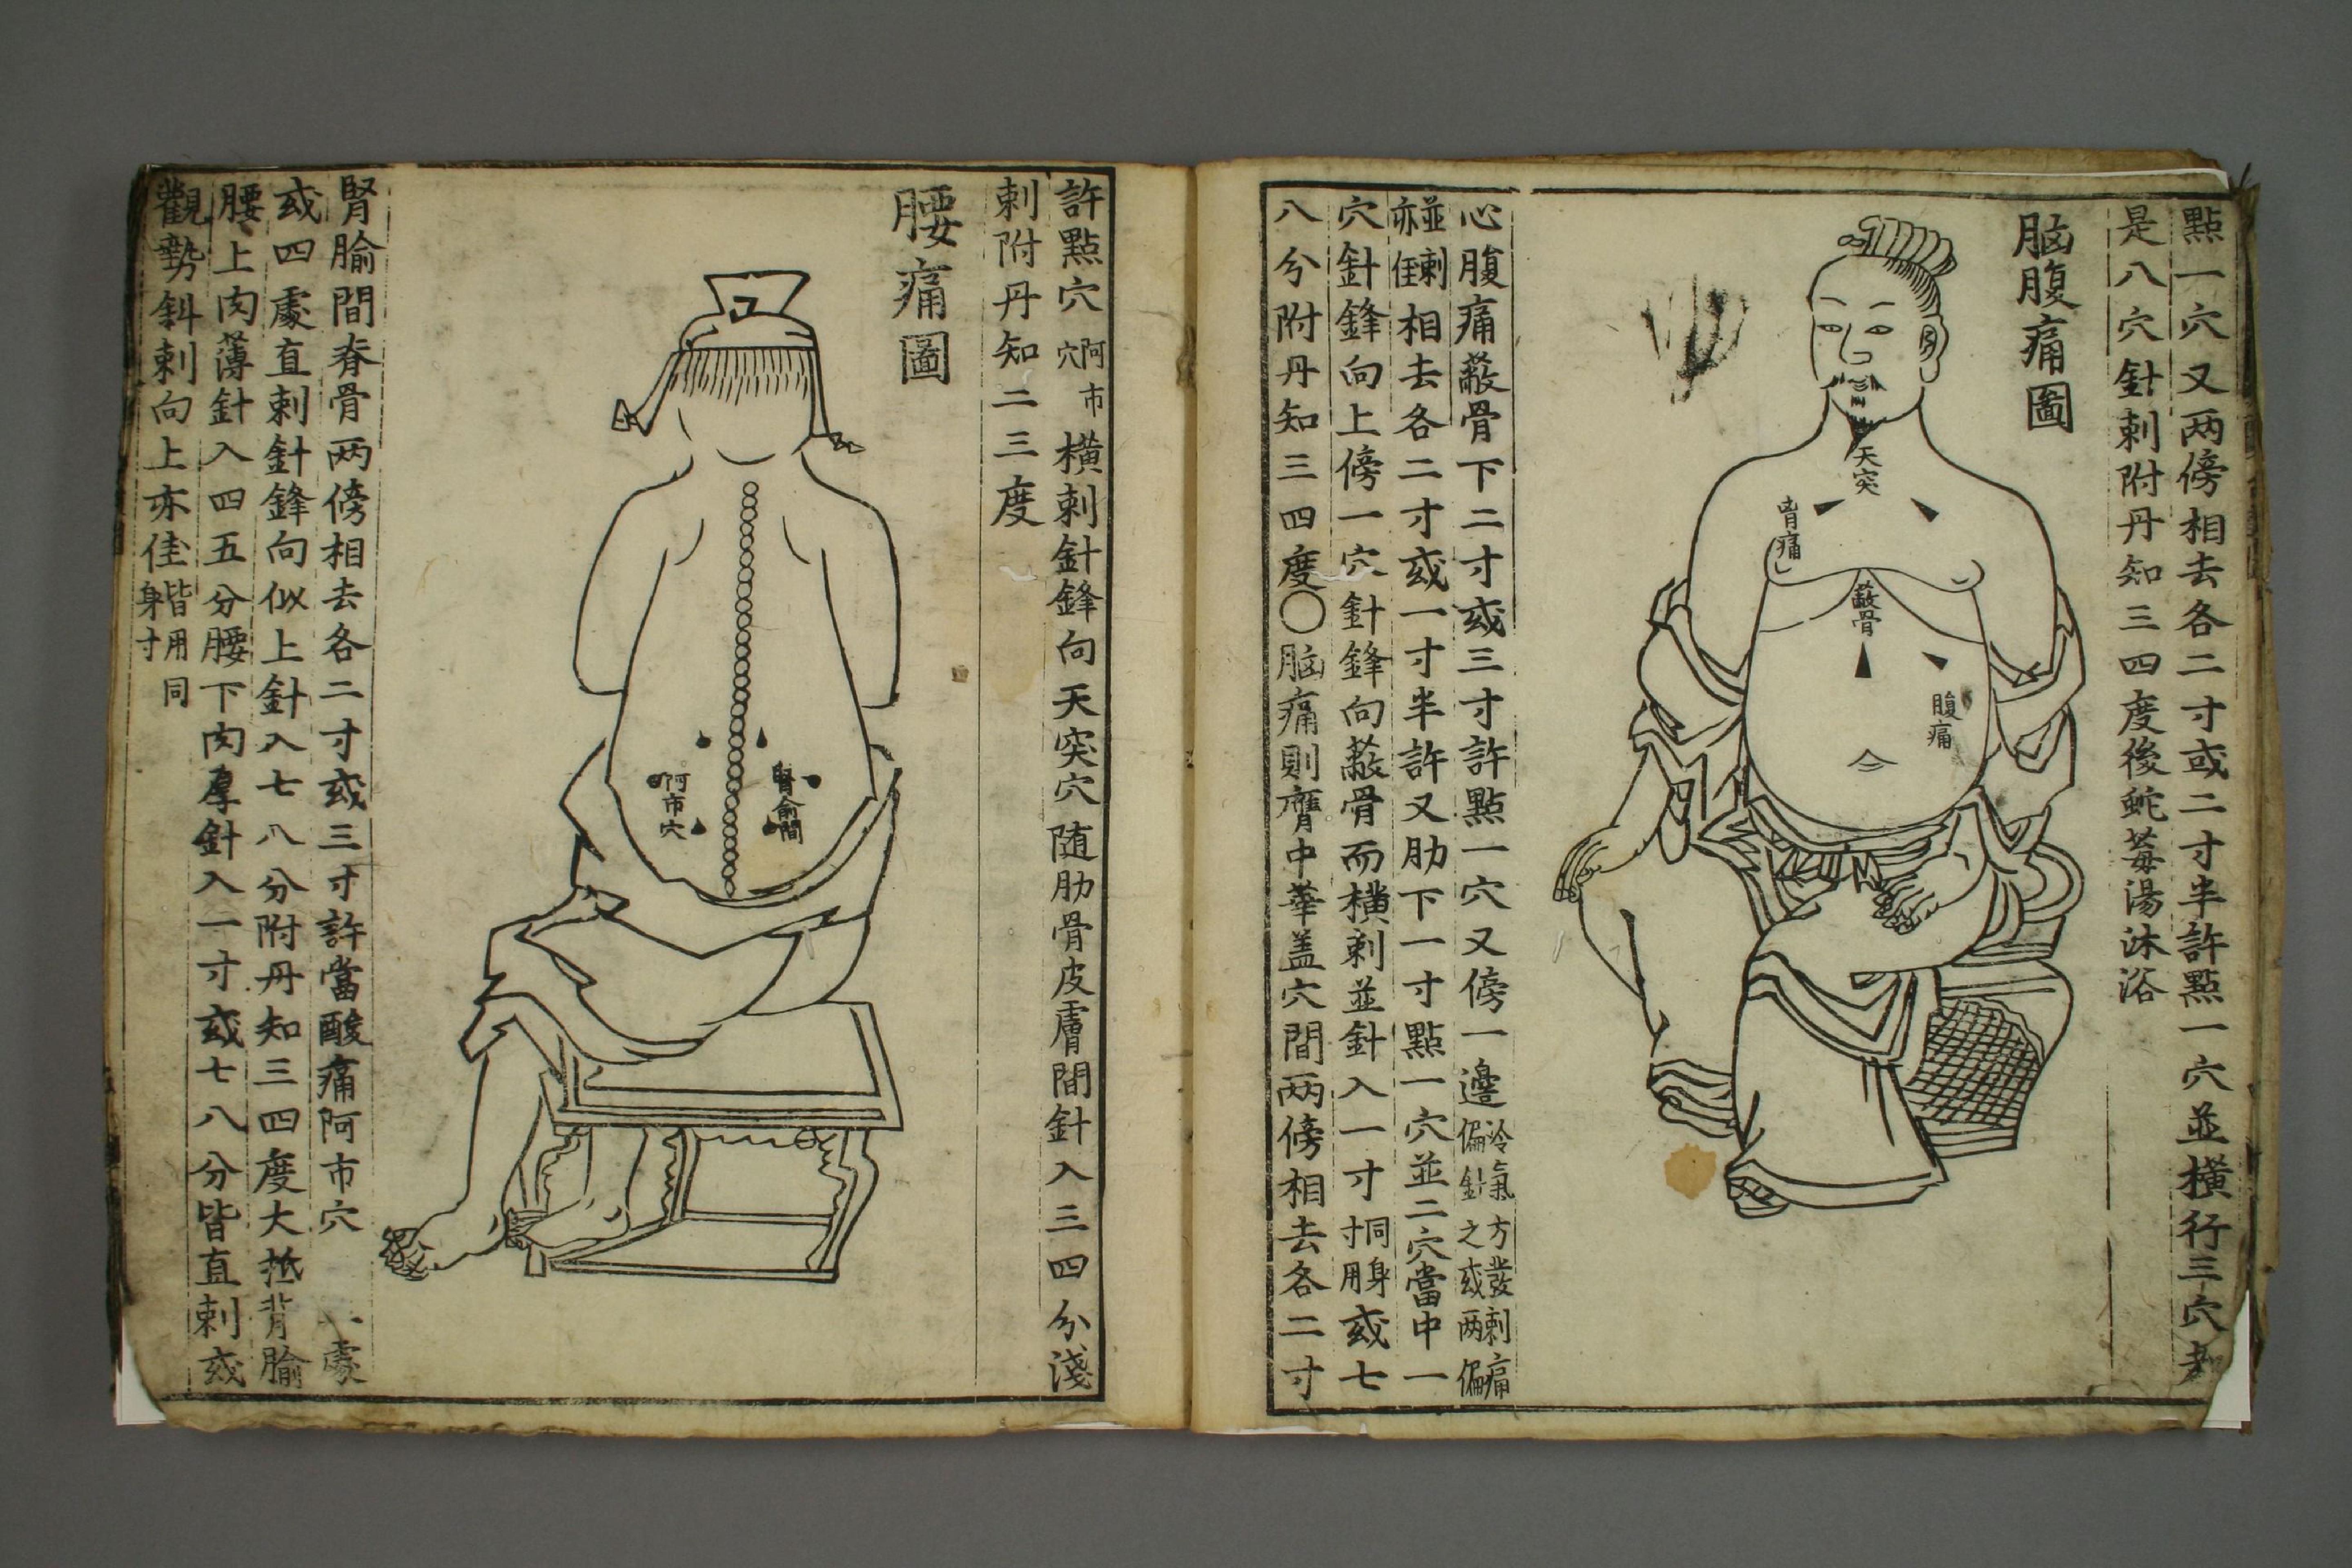 點一穴又两傍相去各二寸或二寸半許點一穴並橫行三穴
是八穴針刺附丹知三四度後蛇莓湯沐浴
脳腹痛圖
天突
胷痛
蔽骨
腹痛
心腹痛蔽骨下二寸或三寸許點一穴又傍一邊冷氣方發刺痛偏針之或两偏
並刺亦佳相去各二寸或一寸半許又肋下一寸點一穴並二穴當中一
穴針鋒向上傍一穴針鋒向蔽骨而橫刺並針入一寸同身寸用或七
八分附丹知三四度〇脳痛則膺中華盖穴間两傍相去各二寸
許點穴阿市穴橫刺針鋒向天突穴随肋骨皮膚間針入三四分淺
刺附丹知二三度
腰痛圖
腎俞間
阿市穴
腎腧間脊骨两傍相去各二寸或三寸許當酸痛阿市穴處
或四處直刺針鋒向似上針入七八分附丹知三四度大抵背腧
腰上肉薄針入四五分腰下肉厚針入一寸或七八分皆直刺或
觀勢斜刺向上亦佳皆用同身寸